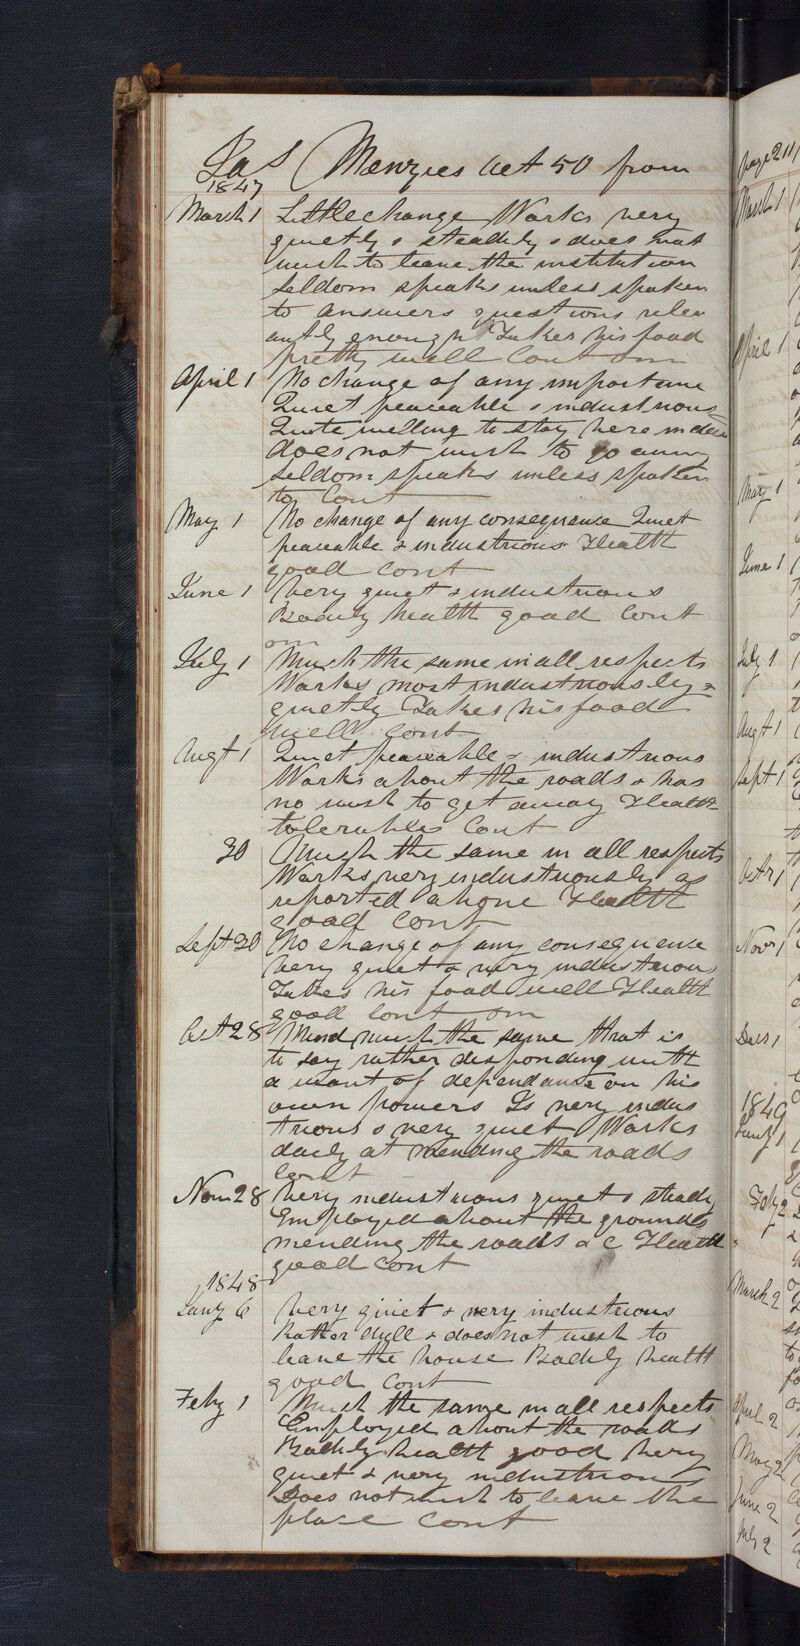 Jas Menzies aet 50 from
1847
March 1 Little change Works very
quietly & steadily & does not
wish to leave the institution
Seldom speaks unless spoken
to answers questions relev
antly enough Takes his food
pretty well Cont om
April 1 No change of any importance
Quiet peaceable & industrious
Quite willing to stay here indeed
does not wish to go away
Seldom speaks unless spoken
to Cont
May 1 No change of any consequence Quiet
peaceable & industrious Health
good Cont
June 1 Very quiet & industrious
Bodily health good Cont
om
July 1 Much the same in all respects
Works most industriously &
quietly Takes his food
well Cont
Augt 1 Quiet peaceable & industrious
Works about the roads & has
no wish to get away Health
tolerable Cont
30 Much the same in all respects
Works very industriously as
reported above Health
good Cont
Sept 30 No change of any consequence
Very quiet & very industrious
Takes his food well Health
good Cont om
Oct 28 Mind much the same that is
to say rather desponding with
a want of dependance on his
own powers Is very indus
trious & very quiet Works
daily at mending the roads
Cont
Novr 28 Very industrious quiet & steady
Employed about the grounds
mending the roads & c Health
good Cont
1848
Jany 6 Very quiet & very industrious
Rather dull & does not wish to
leave the house Bodily health
good Cont
Feby 1 Much the same in all respects
Employed about the roads
Bodily health good Very
quiet & very industrious
Does not wish to leave the
place Cont
page 211
March 1
April 1
May 1
June 1
July 1
Augt 1
Sept 1
Octr 1
Novr 1
Decr 1
1849
Jany 1
Feby 2
March 2
April 2
May 2
June 2
July 2